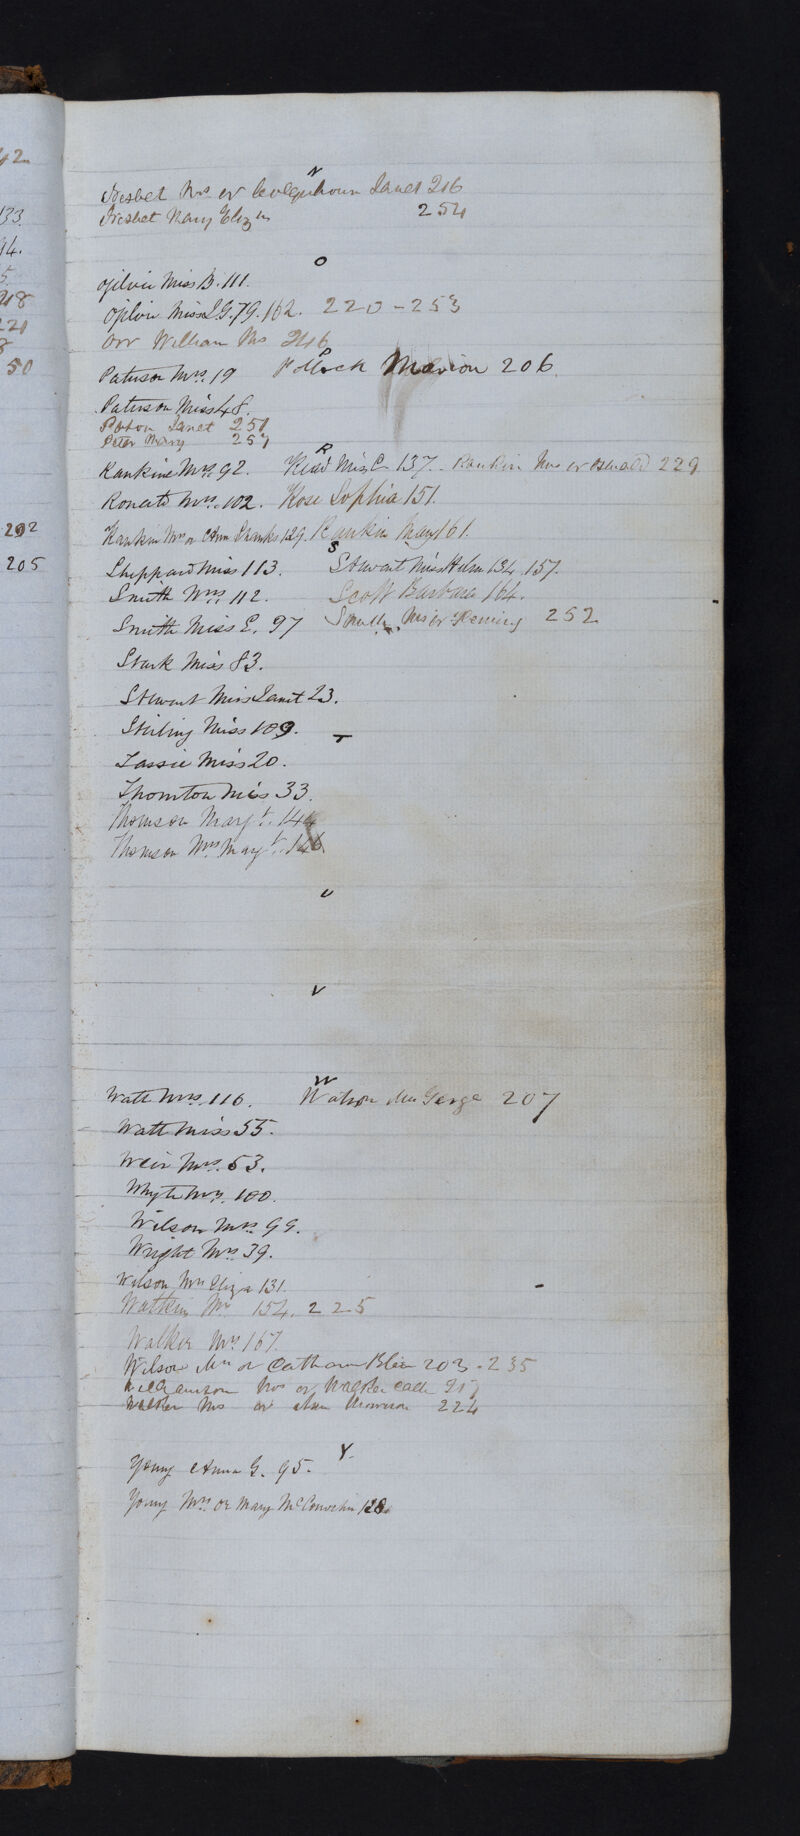 42
133
94.
5
218
221
8
50
202
205
N
Nisbet Mrs or Colquhoun Janet 216
Nisbet Mary Elizth 254
O
Ogilvie Miss B. 111.
Ogilvie Miss I.G. 79. 162. 220 - 253
Orr William Mrs 246
P
Paterson Mrs. 19 Pollock Marion 206.
Paterson Miss 48.
Paton Janet 251
Peter Mary 257
R
Rankine Mrs. 92. Reid Miss C 137. Rankin Mrs or Oswald 229
Ronald Mrs. 102. Rose Sophia 151.
Rankin Mrs or Ann Shanks 129. Rankin Mary 161.
S
Sheppard Miss 113. Stewart Miss Helen 134. 157.
Smith Mrs 112. Scott Barbara 164.
Smith Miss E. 97 Smith Mrs or Fleming 252
Stark Miss 83.
Stewart Miss Janet 23.
Stirling Miss 109.
T
Tassie Miss 20.
Thornton Miss 33.
Thomson Margt. 144
Thomson Mrs Margt. 146.
U
V
W
Watt Mrs. 116. Watson Mrs George 207
Watt Miss 55.
Weir Mrs. 53.
Whyte Mrs. 100.
Wilson Mrs 99.
Wright Mrs 39.
Wilson Mrs Eliza 131.
Watkins Mrs 154. 225
Walker Mrs 167.
Wilson Mrs or Catharine Blair 203 - 235
Williamson Mrs or Walker 217
Walker Mrs or Ann Morrison 224
Y.
Young Anna G. 95.
Young Mrs or Mary 128